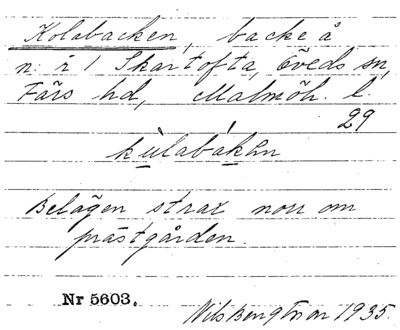 Kolabacken, backe å
n:r 1 Skartofta, Öveds sn,
Färs hd, Malmöh. l.
29
kùlabákən
Belägen strax norr om
prästgården.
Nr 5603.
Nils Bengtsson 1935.